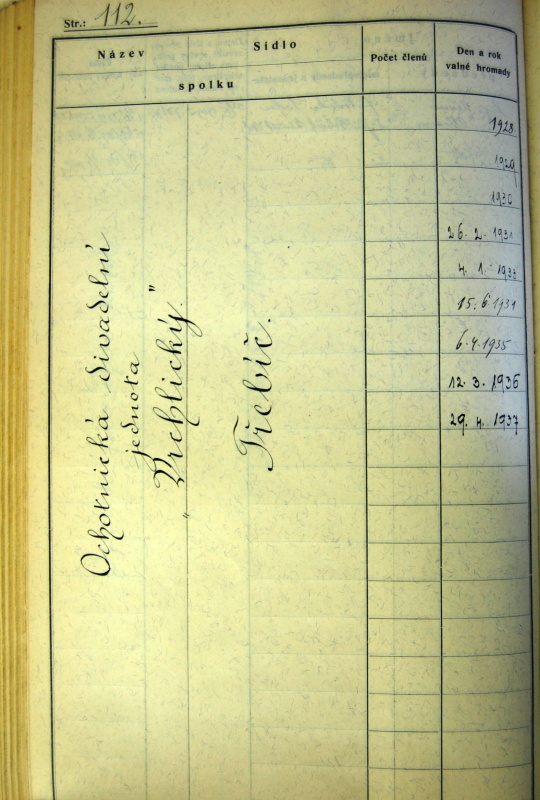 Str.: 112.
Název
Sídlo
spolku
Počet členů
Den a rok
valné hromady
Ochotnická divadelní
jednota
„Vrchlický"
Třebíč.
1928
1929
1930
26. 2. 1931
4. 1. 1933
15. 6 1931
6. 4. 1935
12. 3. 1936
29. 4. 1937